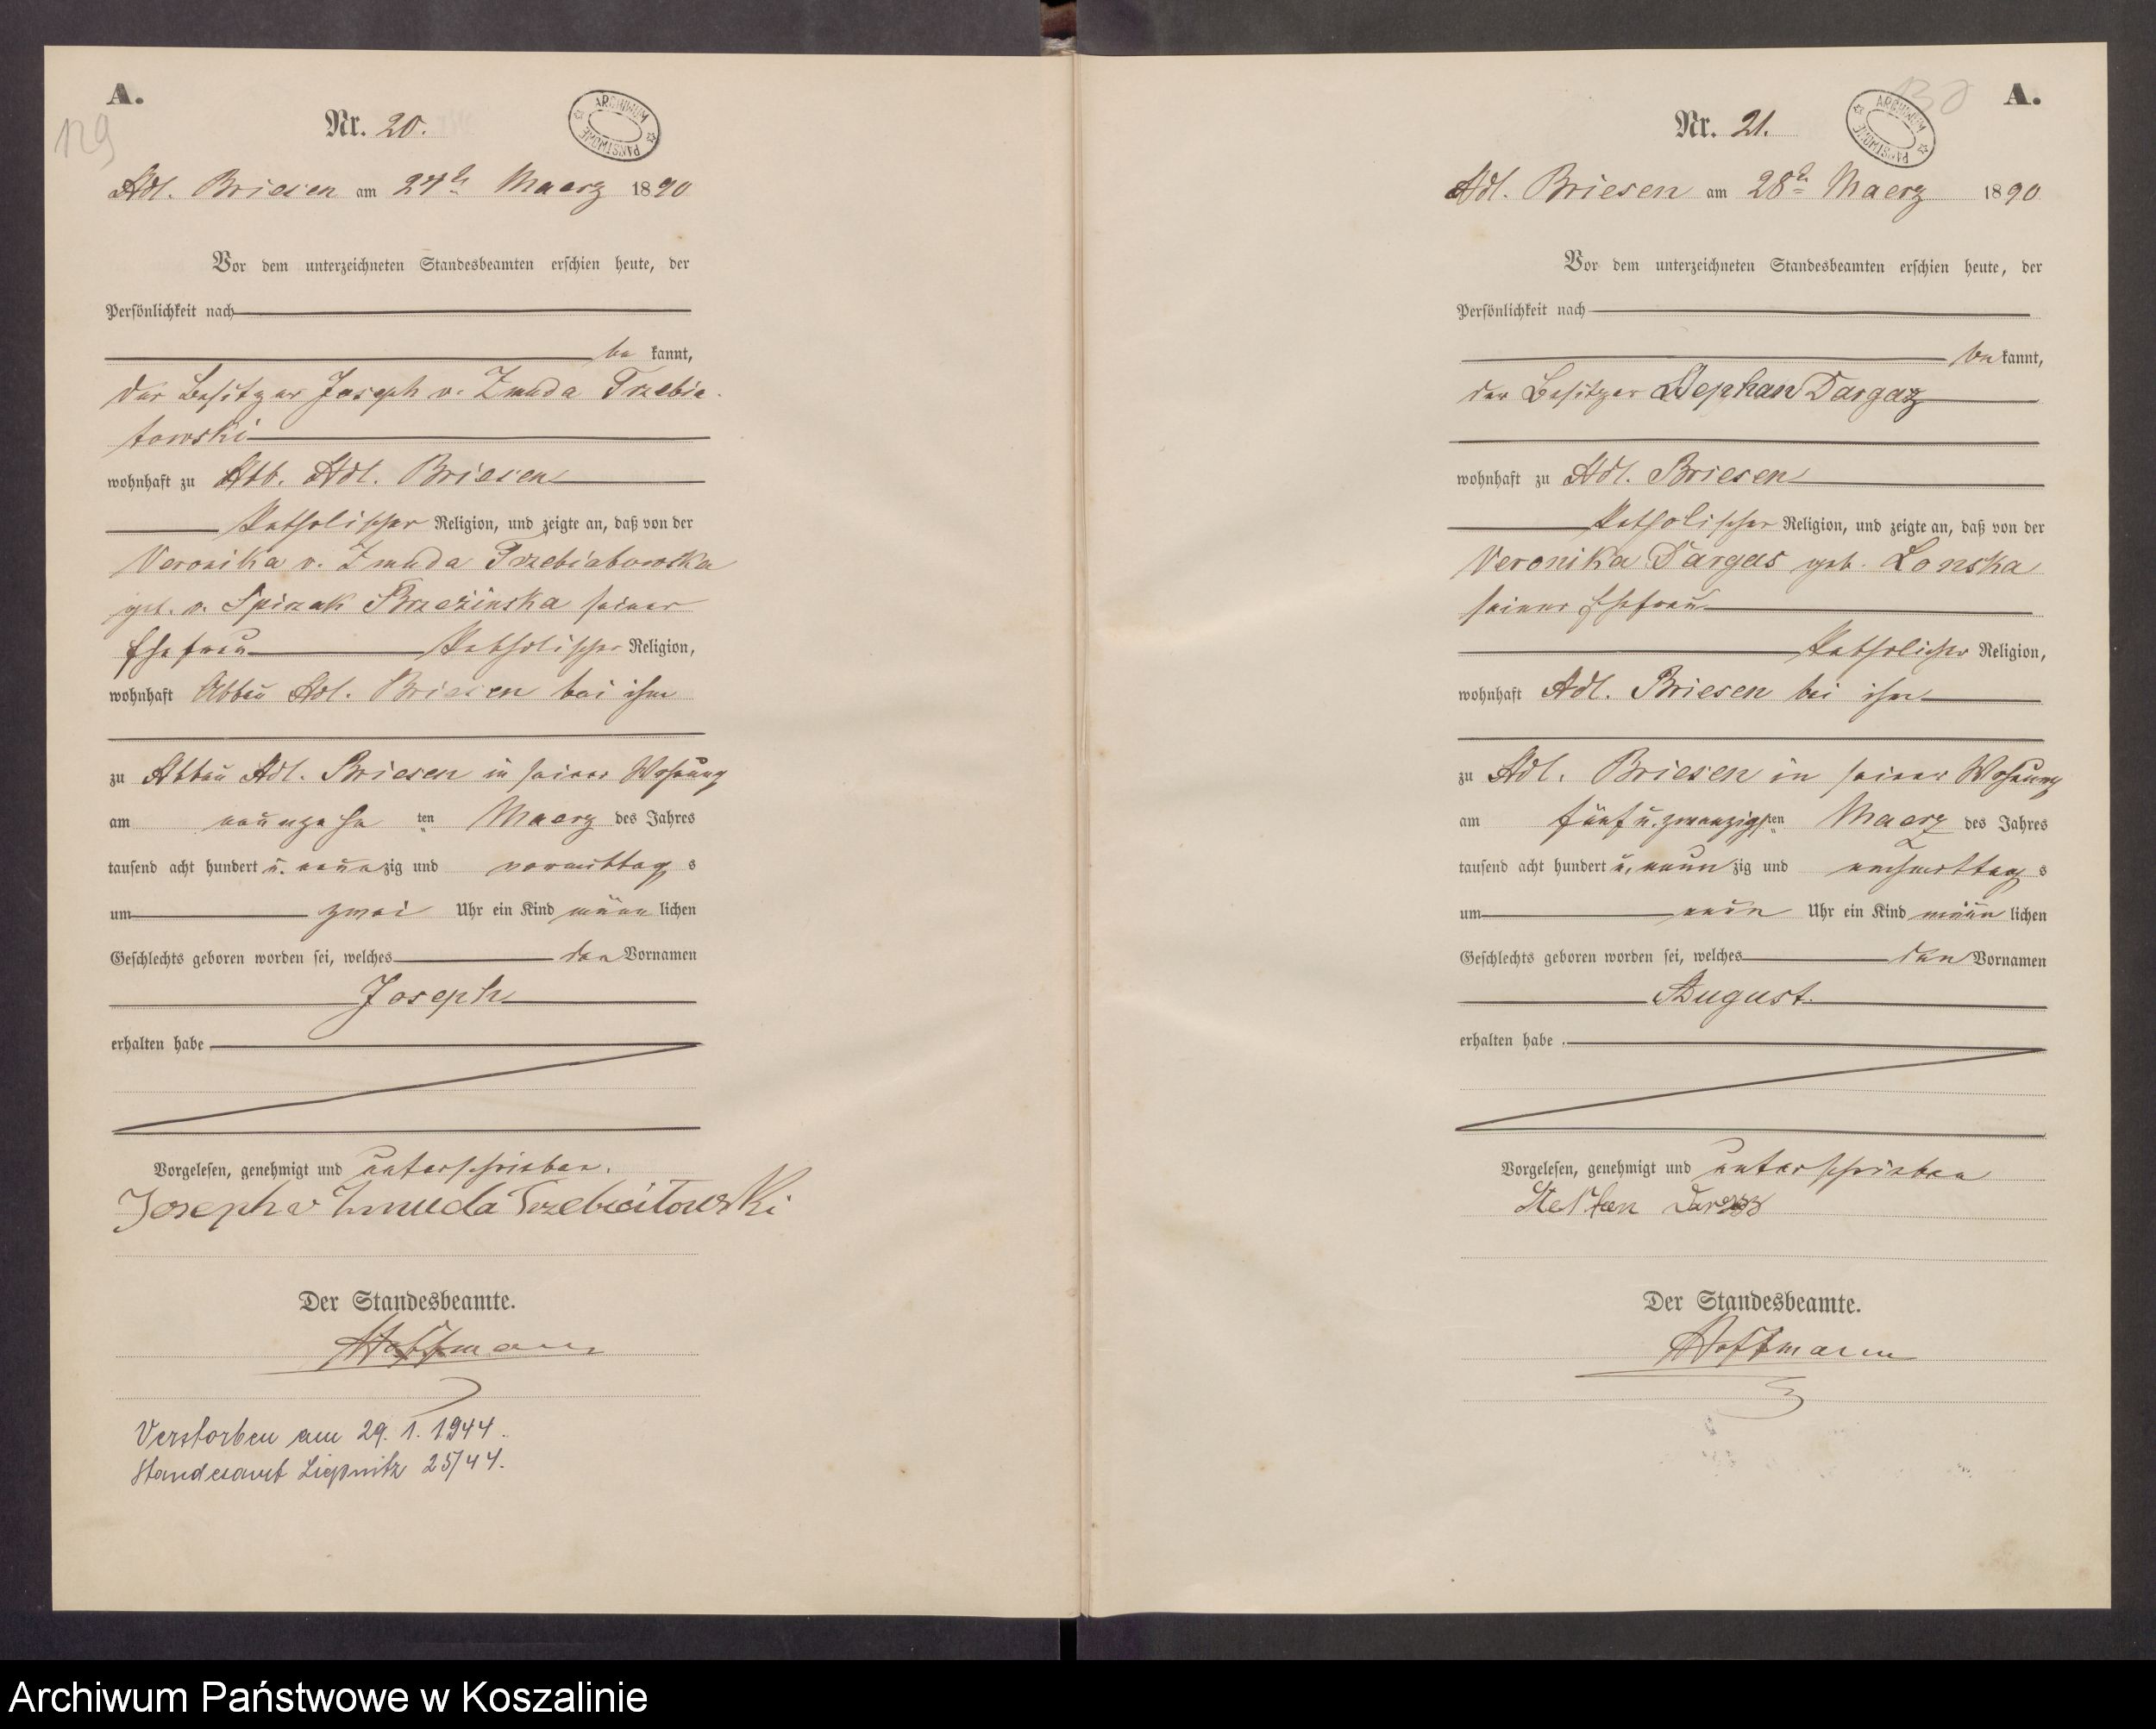 A.
129
Nr. 20.
ARCHIWUM PAŃSTWOWE
Adl. Briesen am 24ten Maerz 1890
Vor dem unterzeichneten Standesbeamten erschien heute, der
Persönlichkeit nach
be kannt,
der Besitzer Joseph v. Zmuda Trzebia
towski
wohnhaft zu Abb. Adl. Briesen
Katholischer Religion, und zeigte an, daß von der
Veronika v. Zmuda Trzebiatowska
geb. v. Spiczak Brzezinska seiner
Ehefrau Katholischer Religion,
wohnhaft Abbau Adl. Briesen bei ihm
zu Abbau Adl. Briesen in seiner Wohnung
am neunzehn ten Maerz des Jahres
tausend acht hundert u. neunzig und vormittags
um zwei Uhr ein Kind männlichen
Geschlechts geboren worden sei, welches den Vornamen
Joseph
erhalten habe
Vorgelesen, genehmigt und unterschrieben.
Joseph v Zmuda Trzebiatowski
Der Standesbeamte.
Hoffmann
Verstorben am 29. 1. 1944.
Standesamt Liepnitz 25/44.
130
A.
Nr. 21.
ARCHIWUM PAŃSTWOWE
Adl. Briesen am 28ten Maerz 1890
Vor dem unterzeichneten Standesbeamten erschien heute, der
Persönlichkeit nach
be kannt,
der Besitzer Stephan Dargaz
wohnhaft zu Adl. Briesen
Katholischer Religion, und zeigte an, daß von der
Veronika Dargas geb. Lonska
seiner Ehefrau
Katholischer Religion,
wohnhaft Adl. Briesen bei ihm
zu Adl. Briesen in seiner Wohnung
am fünf u. zwanzigsten Maerz des Jahres
tausend acht hundert u. neunzig und nachmittags
um neun Uhr ein Kind männlichen
Geschlechts geboren worden sei, welches den Vornamen
August.
erhalten habe
Vorgelesen, genehmigt und unterschrieben
Der Standesbeamte.
Hoffmann
Archiwum Państwowe w Koszalinie